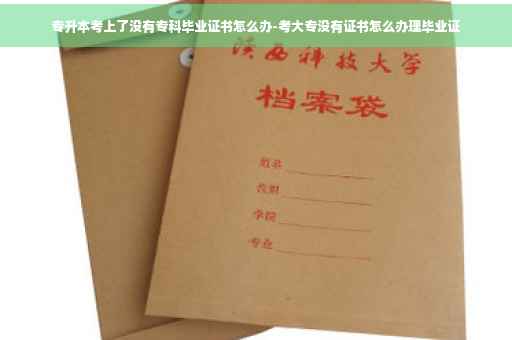 专升本考上了没有专科毕业证书怎么办-考大专没有证书怎么办理毕业证
陕西科技大学
档案袋
学院
专业